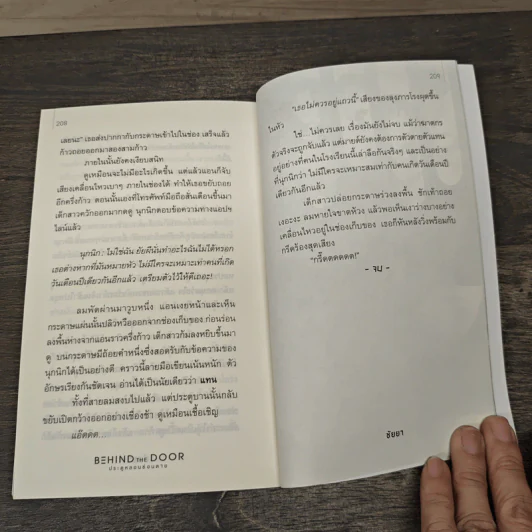 208
เลยนะ" เธอส่งปากกากับกระดาษเข้าไปในช่อง เสร็จแล้ว
ก้าวถอยออกมาสองสามก้าว
ภายในนั้นยังคงเงียบสนิท
ดูเหมือนจะไม่มีอะไรเกิดขึ้น แต่แล้วแอนก็จับ
เสียงเคลื่อนไหวเบาๆ ภายในช่องได้ ทำให้เธอขยับถอย
อีกครึ่งก้าว ตอนนั้นเองที่โทรศัพท์มือถือสั่นเตือนขึ้นมา
เด็กสาวควักออกมากดดู นุกนิกตอบข้อความทางแอปพ
ไลน์แล้ว
นุกนิก: ไม่ใช่ฉัน ยัยผีนั่นทำอะไรฉันไม่ได้หรอก
เธอต่างหากที่มันหมายหัว ไม่มีใครจะเหมาะเท่าคนที่เกิด
วันเดือนปีเดียวกันอีกแล้ว เตรียมตัวไว้ให้ดีเถอะ!
ลมพัดผ่านมาวูบหนึ่ง แอนเงยหน้าและเห็น
กระดาษแผ่นนั้นปลิวหวือออกจากช่องเก็บของ ก่อนร่อน
ลงพื้นห่างจากแอนราวครึ่งก้าว เด็กสาวก้มลงหยิบขึ้นมา
ดู บนกระดาษมีถ้อยคำหนึ่งซึ่งสอดรับกับข้อความของ
นุกนิกได้เป็นอย่างดี คราวนี้ลายมือเขียนเน้นหนัก ตัว
อักษรเรียงกันชัดเจน อ่านได้เป็นนัยเดียวว่า แทน
ทั้งที่สายลมสงบไปแล้ว แต่ประตูบานนั้นกลับ
ขยับเปิดกว้างออกอย่างเชื่องช้า ดูเหมือนเชื้อเชิญ
แอ๊ดดด.
BEHIND THE DOOR
ประตูหลอนซ่อนตาย
209
"เธอไม่ควรอยู่แถวนี้" เสียงของลุงภารโรงผุดขึ้น
ในหัว
ใช่... ไม่ควรเลย เรื่องมันยังไม่จบ แม้ว่าฆาตกร
ตัวจริงจะถูกจับแล้ว แต่มายด์ยังคงต้องการตัวตายตัวแทน
อยู่อย่างที่คนในโรงเรียนนี้เล่าลือกันจริงๆ และเป็นอย่าง
ที่นุกนิกว่า ไม่มีใครจะเหมาะสมเท่ากับคนเกิดวันเดือนปี
เดียวกันอีกแล้ว
เด็กสาวปล่อยกระดาษร่วงลงพื้น ชักเท้าถอย
เงอะงะ ลมหายใจขาดห้วง แล้วพอเห็นเงาร่างบางอย่าง
เคลื่อนไหวอยู่ในช่องเก็บของ เธอก็หันหลังวิ่งพร้อมกับ
กรีดร้องสุดเสียง
"กรี๊ดดดดดด!"
- จบ -
ชัยยา